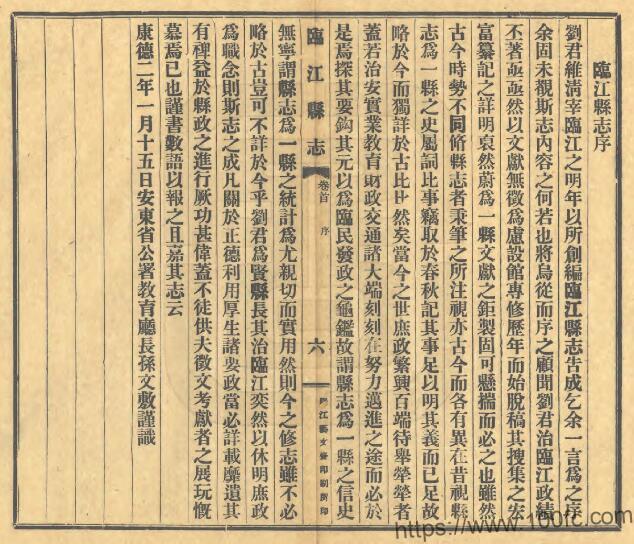 臨江縣志序
劉君維清宰臨江之明年以所創編臨江縣志告成乞余一言爲之序
余固未覩斯志內容之何若也將烏從而序之顧聞劉君治臨江政績
丕著亟亟然以文獻無徵爲慮設館專修歷年而始脫稿其搜集之宏
富纂記之詳明裒然蔚爲一縣文獻之鉅製固可懸揣而必之也雖然
古今時勢不同脩縣志者秉筆之所注視亦古今而各有異在昔視縣
志爲一縣之史屬詞比事竊取於春秋記其事足以明其義而已足故
略於今而獨詳於古比比然矣當今之世庶政繁興百端待舉犖犖者
蓋若治安實業教育財政交通諸大端刻刻在努力邁進之途而必於
是焉探其要鈎其元以爲臨民發政之龜鑑故謂縣志爲一縣之信史
臨江縣志
卷首
序
六
江藝文齋印刷所印
無寧謂縣志爲一縣之統計爲尤親切而實用然則今之修志雖不必
略於古豈可不詳於今乎劉君爲賢縣長其治臨江奕然以休明庶政
爲職念則斯志之成凡關於正德利用厚生諸要政當必詳載靡遺其
有裨益於縣政之進行厥功甚偉蓋不徒供夫徵文考獻者之展玩慨
慕焉已也謹書數語以報之且嘉其志云
康德二年一月十五日安東省公署教育廳長孫文敷謹識
https://www.100fc.com